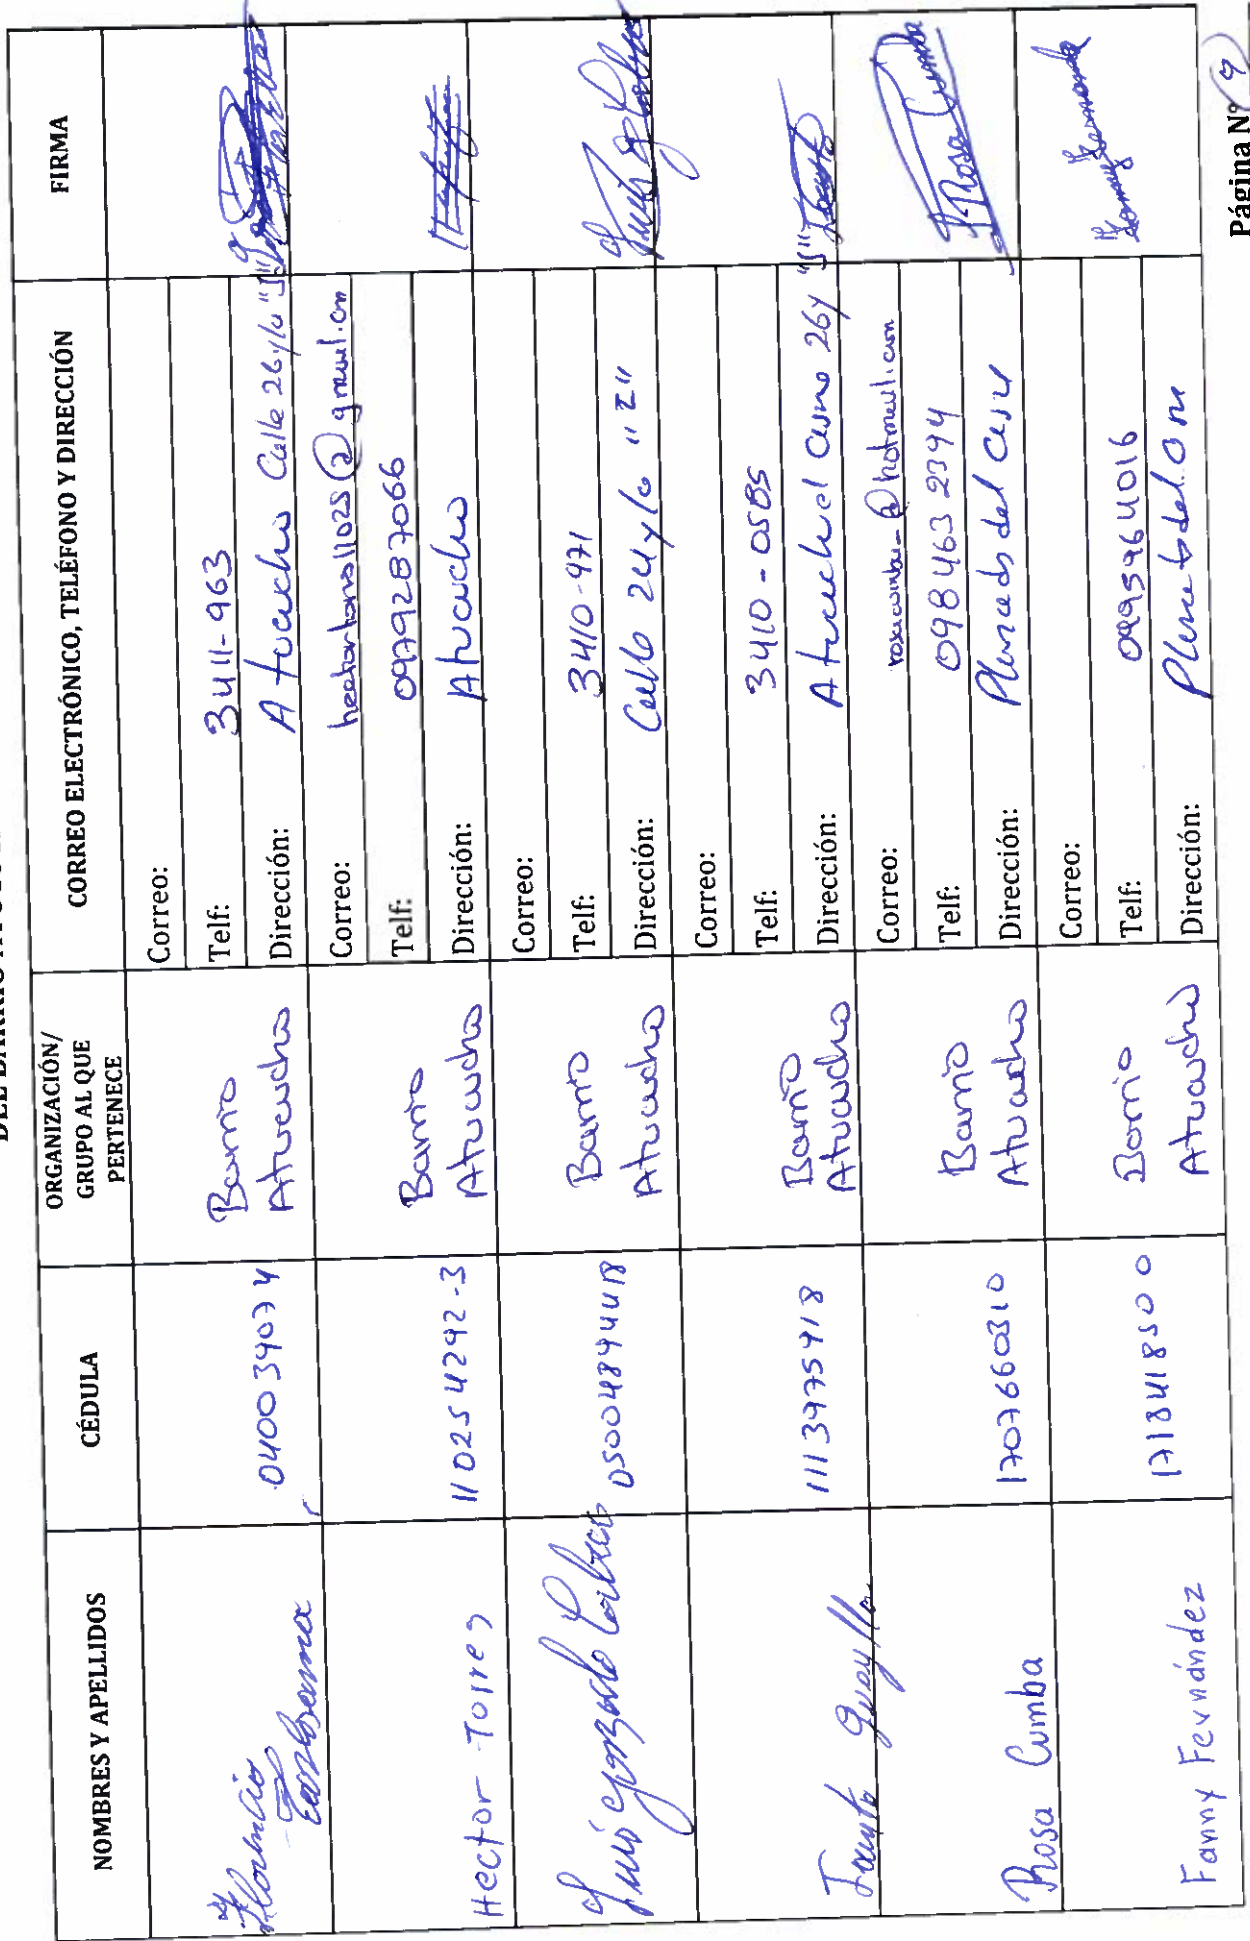 DEL BARRIO ATUCUCHO
NOMBRES Y APELLIDOS
CÉDULA
ORGANIZACIÓN/
GRUPO AL QUE
PERTENECE
CORREO ELECTRÓNICO, TELÉFONO Y DIRECCIÓN
FIRMA
Florencio
0400394074
Barrio
Atucucho
Correo:
Telf: 3411-963
Dirección: Atucucho Calle 26 y la "J"
Hector Torres
110254292-3
Barrio
Atucucho
Correo: hectortorres11025@gmail.com
Telf: 0979287066
Dirección: Atucucho
Luis Gonzalo
Barrio
Atucucho
Correo:
Telf: 3410-971
Dirección: Calle 24 y la "Z"
1113975918
Barrio
Atucucho
Correo:
Telf: 3410-0585
Dirección: Atucucho 26 y "J"
Rosa Cumba
1707660310
Barrio
Atucucho
Correo: rosacumba_@hotmail.com
Telf: 0984632394
Dirección: Planads del
Rosa Cumba
Fanny Fernández
1718418500
Barrio
Atucucho
Correo:
Telf: 0995964016
Dirección:
Fanny Fernandez
Página Nº 9